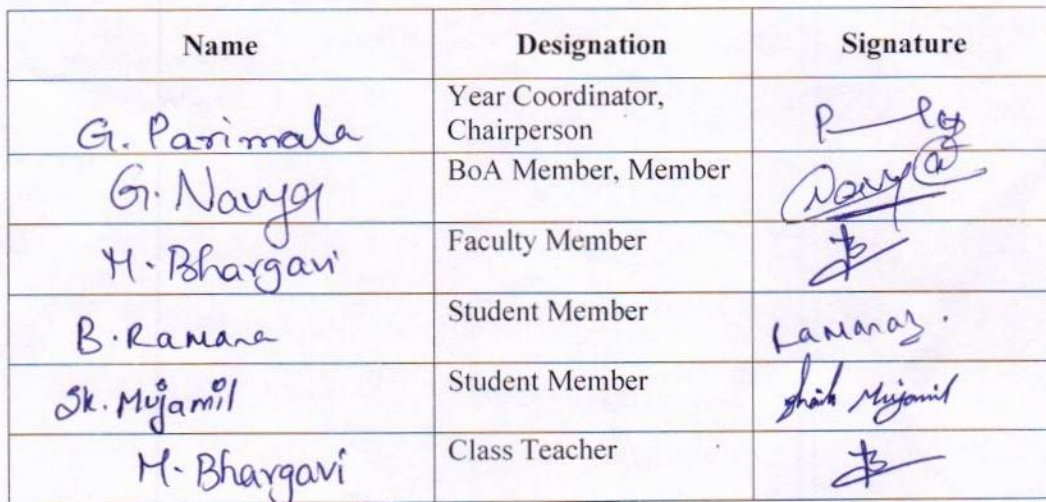 Name Designation Signature
G. Parimala Year Coordinator, Chairperson
G. Navya BoA Member, Member Navya
M. Bhargavi Faculty Member
B. Ramana Student Member Ramana
Sk. Mujamil Student Member Shaik Mujamil
M. Bhargavi Class Teacher